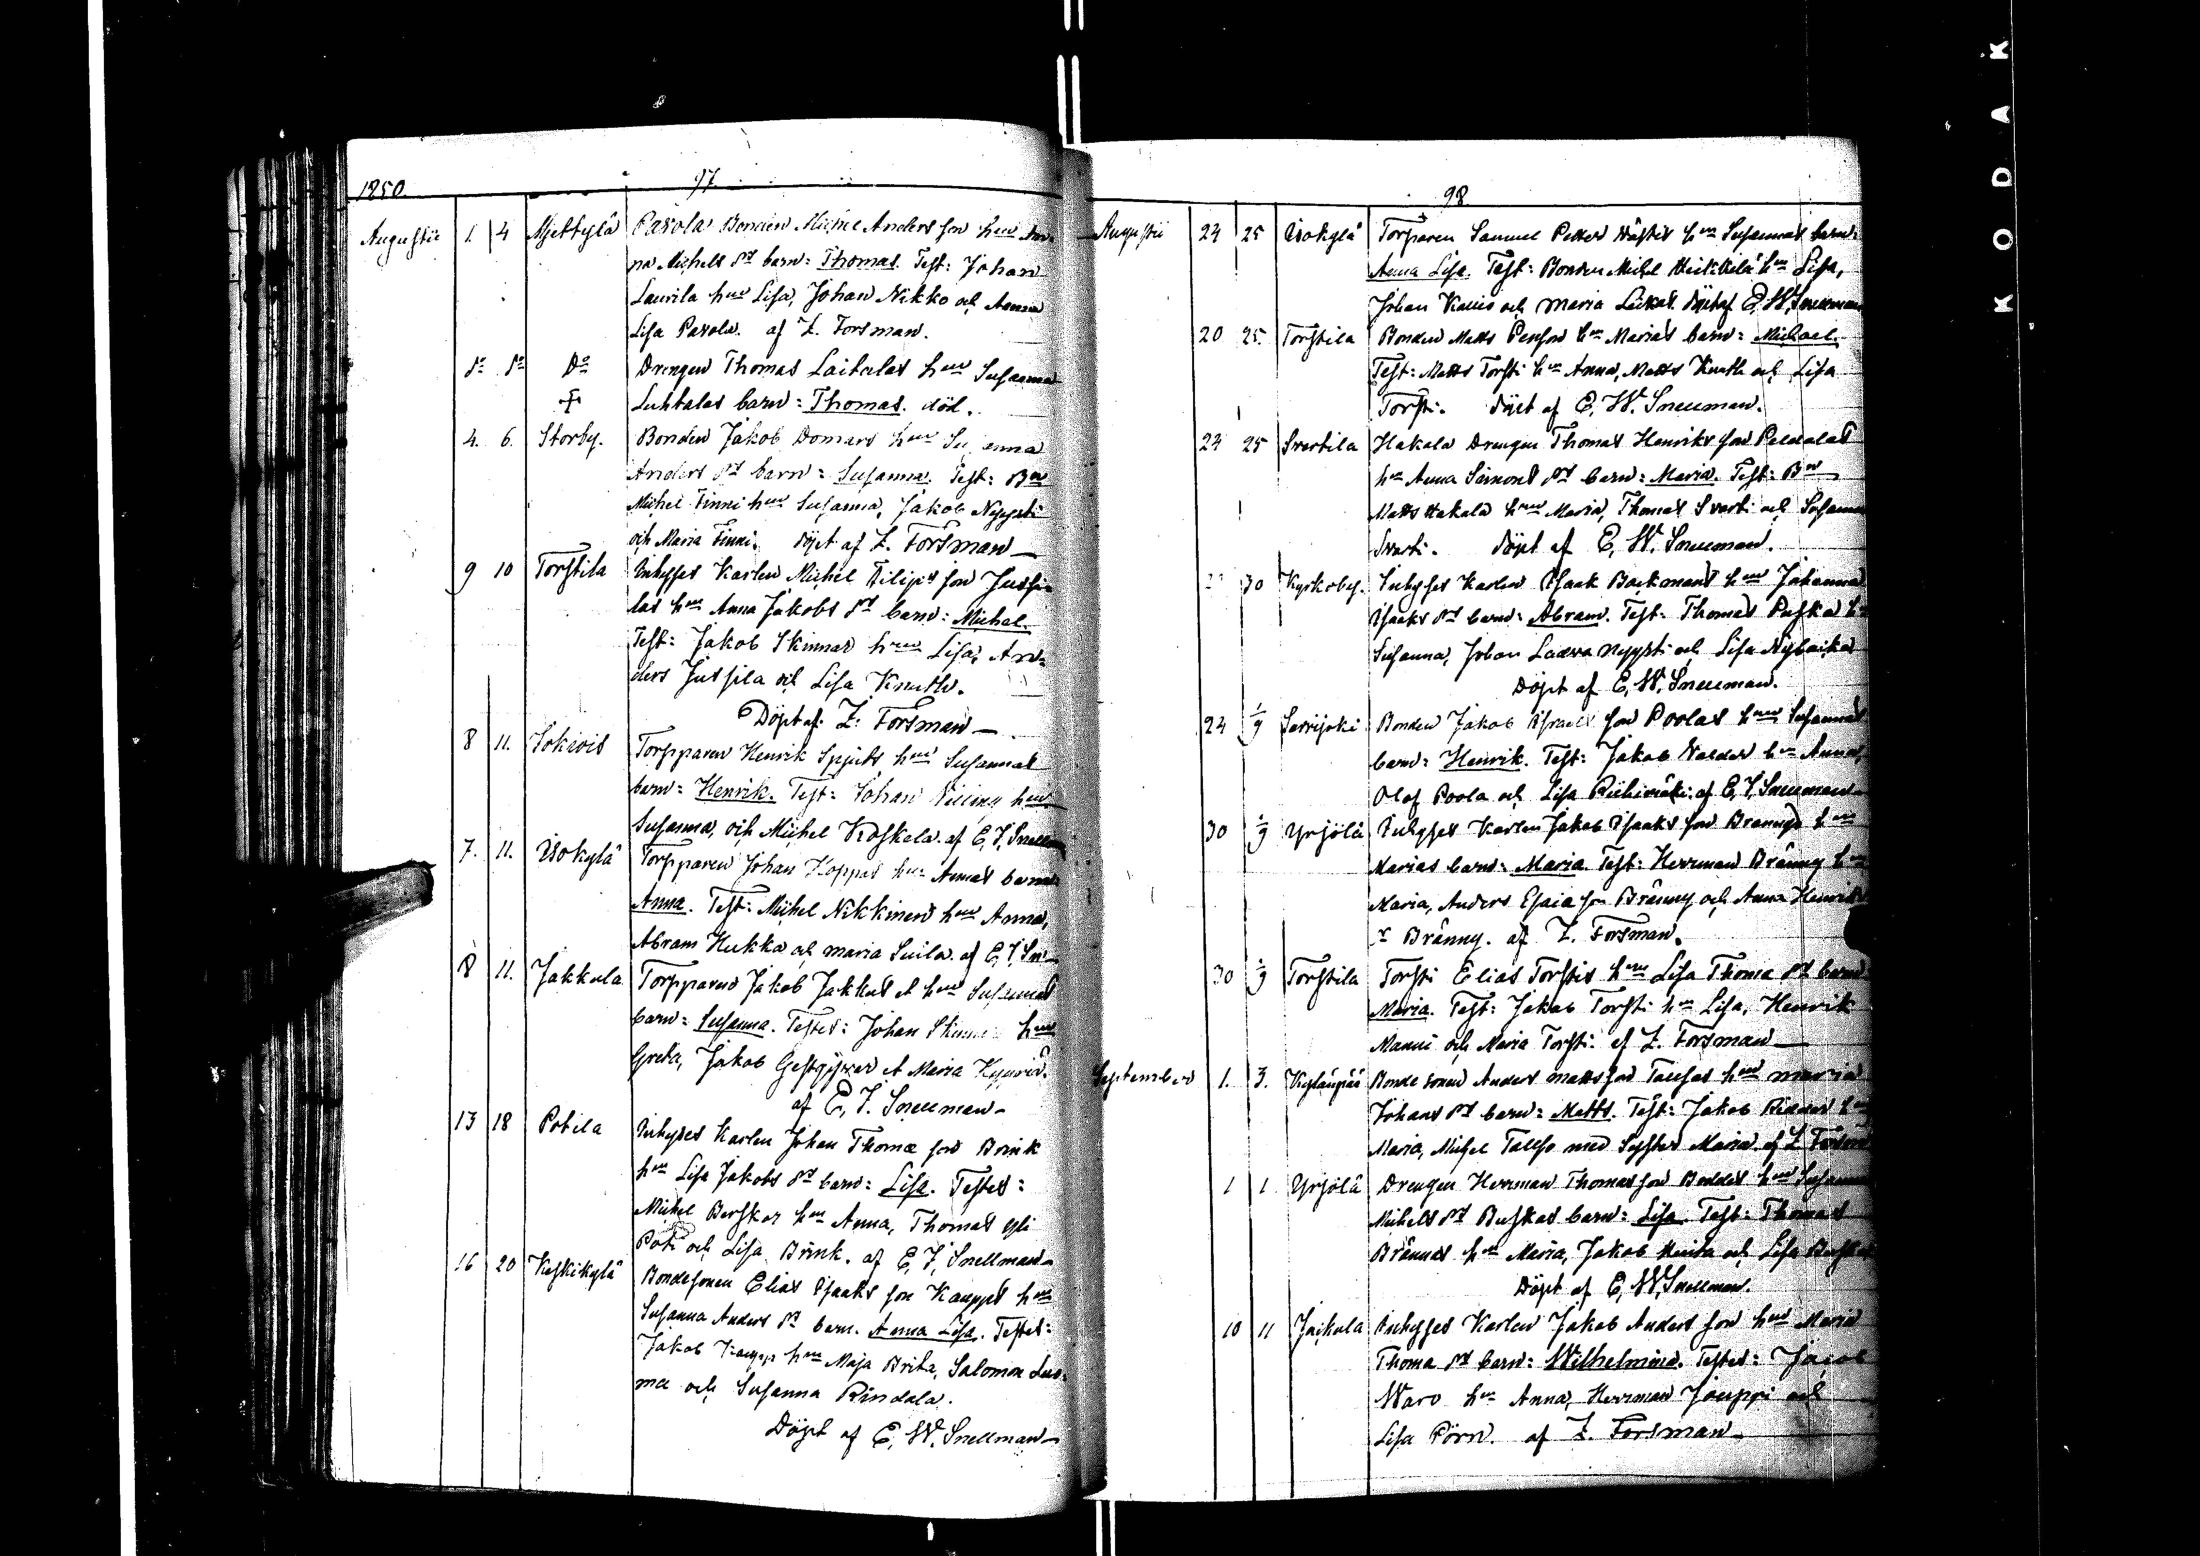 1850. 97
Augustii 1. 4 Mjettylä Pasola Bonden Michel Andersson hm An-
na Michels dr barn: Thomas. Test: Johan
Laurila hm Lisa, Johan Nikko och Anna
Lisa Pasola. af Z. Forsman.
do do Do Drengen Thomas Laitalas hm Susanna
Luhtalas barn: Thomas. död.
4. 6. Storby. Bonden Jakob Domars hm Susanna
Anders dr barn: Susanna. Test: Bn
Michel Finni hm Susanna, Jakob Nyysti
och Maria Finni. döpt af Z. Forsman
9 10 Torstila Inhyses Karlen Michel Filips son Jussi-
las hm Anna Jakobs dr barn: Michel.
Test: Jakob Skinnar hm Lisa, An-
ders Jussila och Lisa Knuth.
Döpt af Z. Forsman
8 11. Sokiois Torpparen Henrik Spjuts hm Susannas
barn: Henrik. Test: Johan hm
Susanna, och Michel Koskela. af E. J. Snellm
7. 11. Isokylä Torpparen Johan Koppas hm Annas barn
Anna. Test: Michel Nikkinen hm Anna,
Abram Hukka och Maria Suila. af E. J. Sn
8 11. Jakkula Torpparen Jakob Jakkus et hm Susannas
barn: Susanna. Testes: Johan hm
Greta, Jakob Gestgifver et Maria
af E. J. Snellman
13 18 Potila Inhyses Karlen Johan Thomæ son Brink
hm Lisa Jakobs dr barn: Lisa. Testes:
Michel Berskar hm Anna, Thomas Yli
Poti och Lisa Brink. af E. J. Snellman
16 20 Keskikylä Bondesonen Elias Isaaks son Kaupps hm
Susanna Anders dr barn. Anna Lisa. Testes:
Jakob Kaupp hm Maja Brita, Salomon Luo-
ma och Susanna Rindala.
Döpt af E. W. Snellman
98
Augustii 24 25 Isokylä Torparen Samuel Petter hm Susannas barn:
Anna Lisa. Test: Bonden Michel Heikkilä hm Lisa,
Johan Kallio och Maria döpt af E. W. Snellman
20 25. Torstila Bonden Matts Penson hm Marias barn: Michael.
Test: Matts Torsti hm Anna, Matts Knuth och Lisa
Torsti. döpt af E. W. Snellman.
24 25 Svertila Hakala Drengen Thomas Henriks son
hm Anna Simons dr barn: Maria. Test: Bn
Matts Hakala hm Maria, Thomas Svarti och Susanna
Svarti. döpt af E. W. Snellman.
30 Kyrkoby. Inhyses Karlen Isaak Backmans hm Johanna
Isaaks dr barn: Abram. Test: Thomas Puska hm
Susanna, Johan Nyysti och Lisa
Döpt af E. W. Snellman.
24 1/9 Sarvijoki Bonden Jakob Israels son Poolas hm Susannas
barn: Henrik. Test: Jakob hm Anna,
Olof Poola och Lisa Riihimäki. af E. J. Snellman
30 1/9 Yrjölä Inhyses Karlen Jakob Isaaks son Brännys hm
Marias barn: Maria. Test: Herrman Bränny hm
Maria, Anders Esaia son Bränny och Anna Henriks
dr Bränny. af Z. Forsman.
30 1/9 Torstila Torsti Elias Torstis hm Lisa Thoma dr barn
Maria. Test: Jakob Torsti hm Lisa, Henrik
Manni och Maria Torsti. af Z. Forsman
September 1. 3. Kylänpää Bonde sonen Anders Mattsson hm Maria
Johans dr barn: Matts. Test: Jakob hm
Maria, Michel med Syster Maria. af Z. Forsm
1 1 Yrjölä Drengen Herrman Thomasson hm Susanna
Michels dr Buskas barn: Lisa. Test: Thomas
Brännas hm Maria, Jakob och Lisa
Döpt af E. W. Snellman.
10 11 Jäikula Inhyses Karlen Jakob Anders son hm Maria
Thoma dr barn: Wilhelmina. Testes: Jacob
Waro hm Anna, Herrman Jouppi och
Lisa Pörn. af Z. Forsman
KODAK